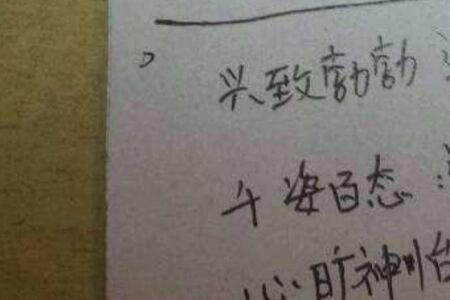 兴致勃勃
千姿百态：
心旷神怡